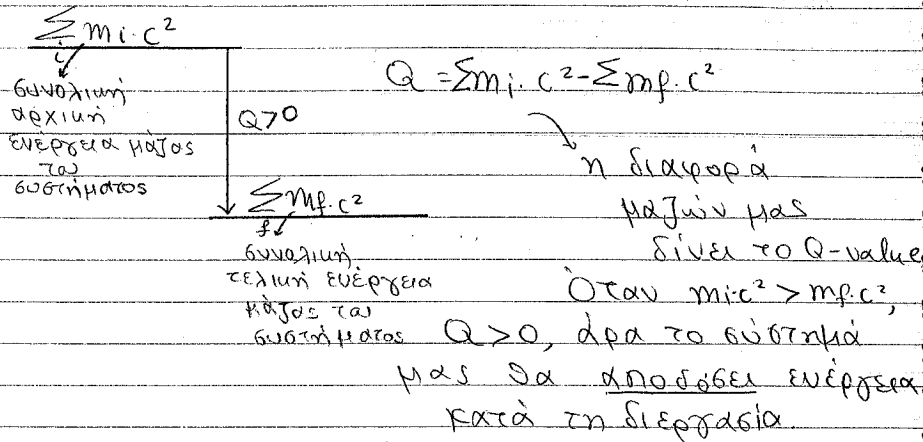 Σ mi·c²
i
συνολική
αρχική
ενέργεια μάζας
του
συστήματος
Q>0
Σ mf·c²
f
συνολική
τελική ενέργεια
μάζας του
συστήματος
Q = Σmi·c² - Σmf·c²
η διαφορά
μαζών μας
δίνει το Q-value
Όταν mi·c² > mf·c²,
Q>0, άρα το σύστημά
μας θα αποδόσει ενέργεια
κατά τη διεργασία.